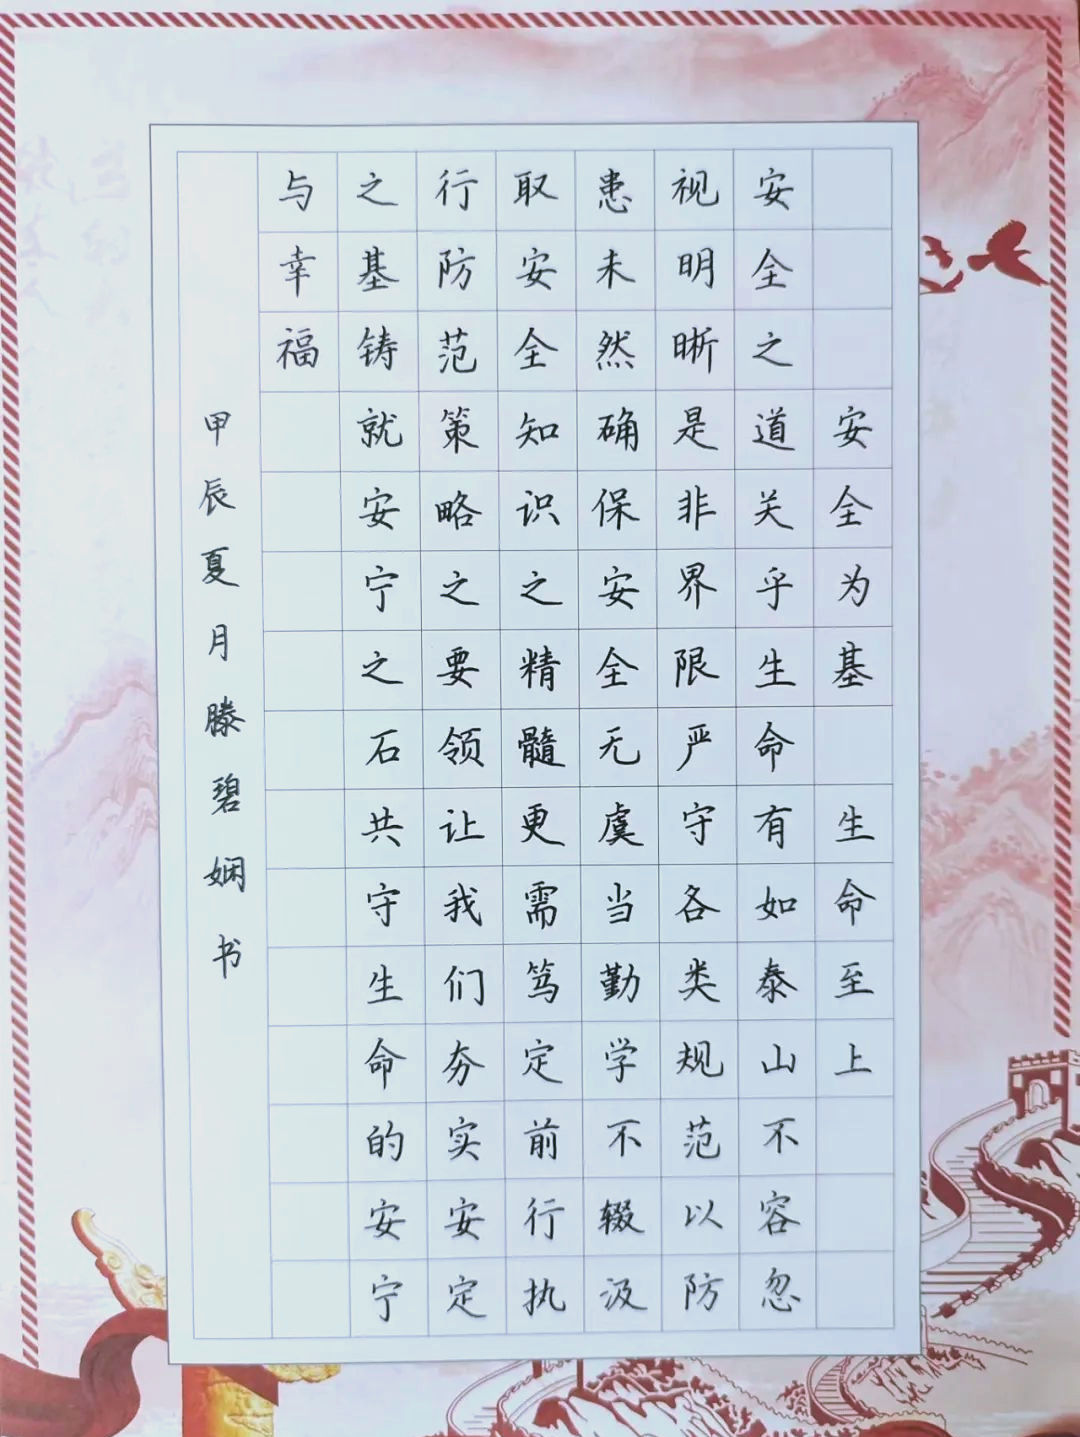 安全为基 生命至上
安全之道关乎生命有如泰山不容忽
视明晰是非界限严守各类规范以防
患未然确保安全无虞当勤学不辍汲
取安全知识之精髓更需笃定前行执
行防范策略之要领让我们夯实安定
之基铸就安宁之石共守生命的安宁
与幸福
甲辰夏月滕碧娴书